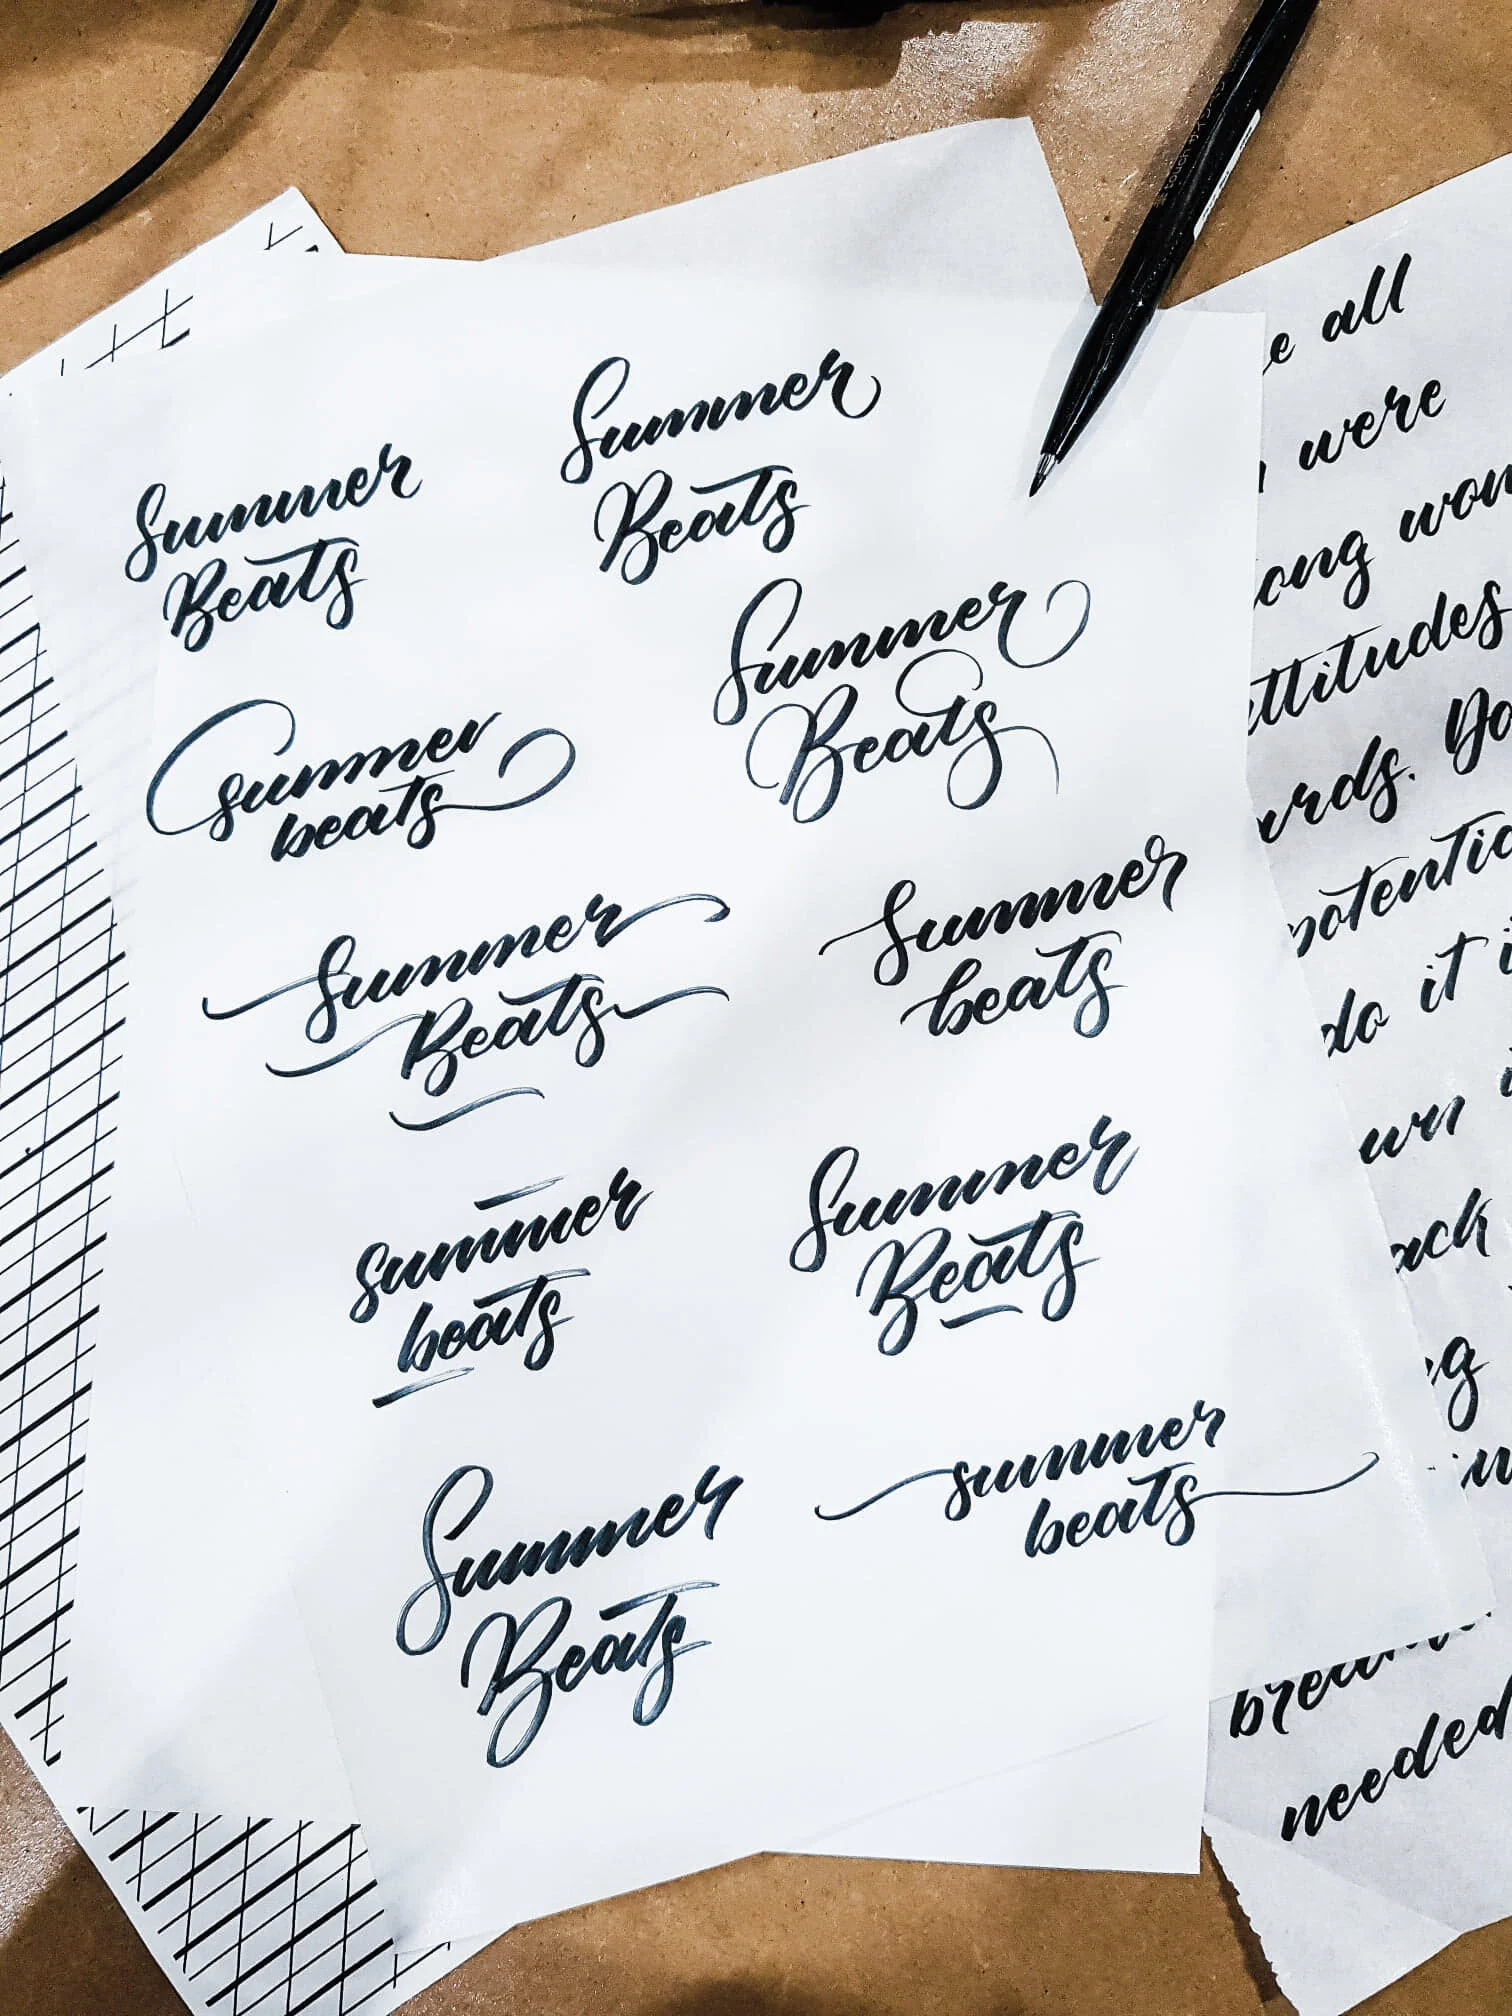 Summer
Beats
Summer
Beats
Summer
Beats
summer
beats
Summer
Beats
Summer
beats
summer
beats
Summer
Beats
Summer
Beats
summer
beats
touch
all
were
ong
ttitudes
ards.
do it
needed